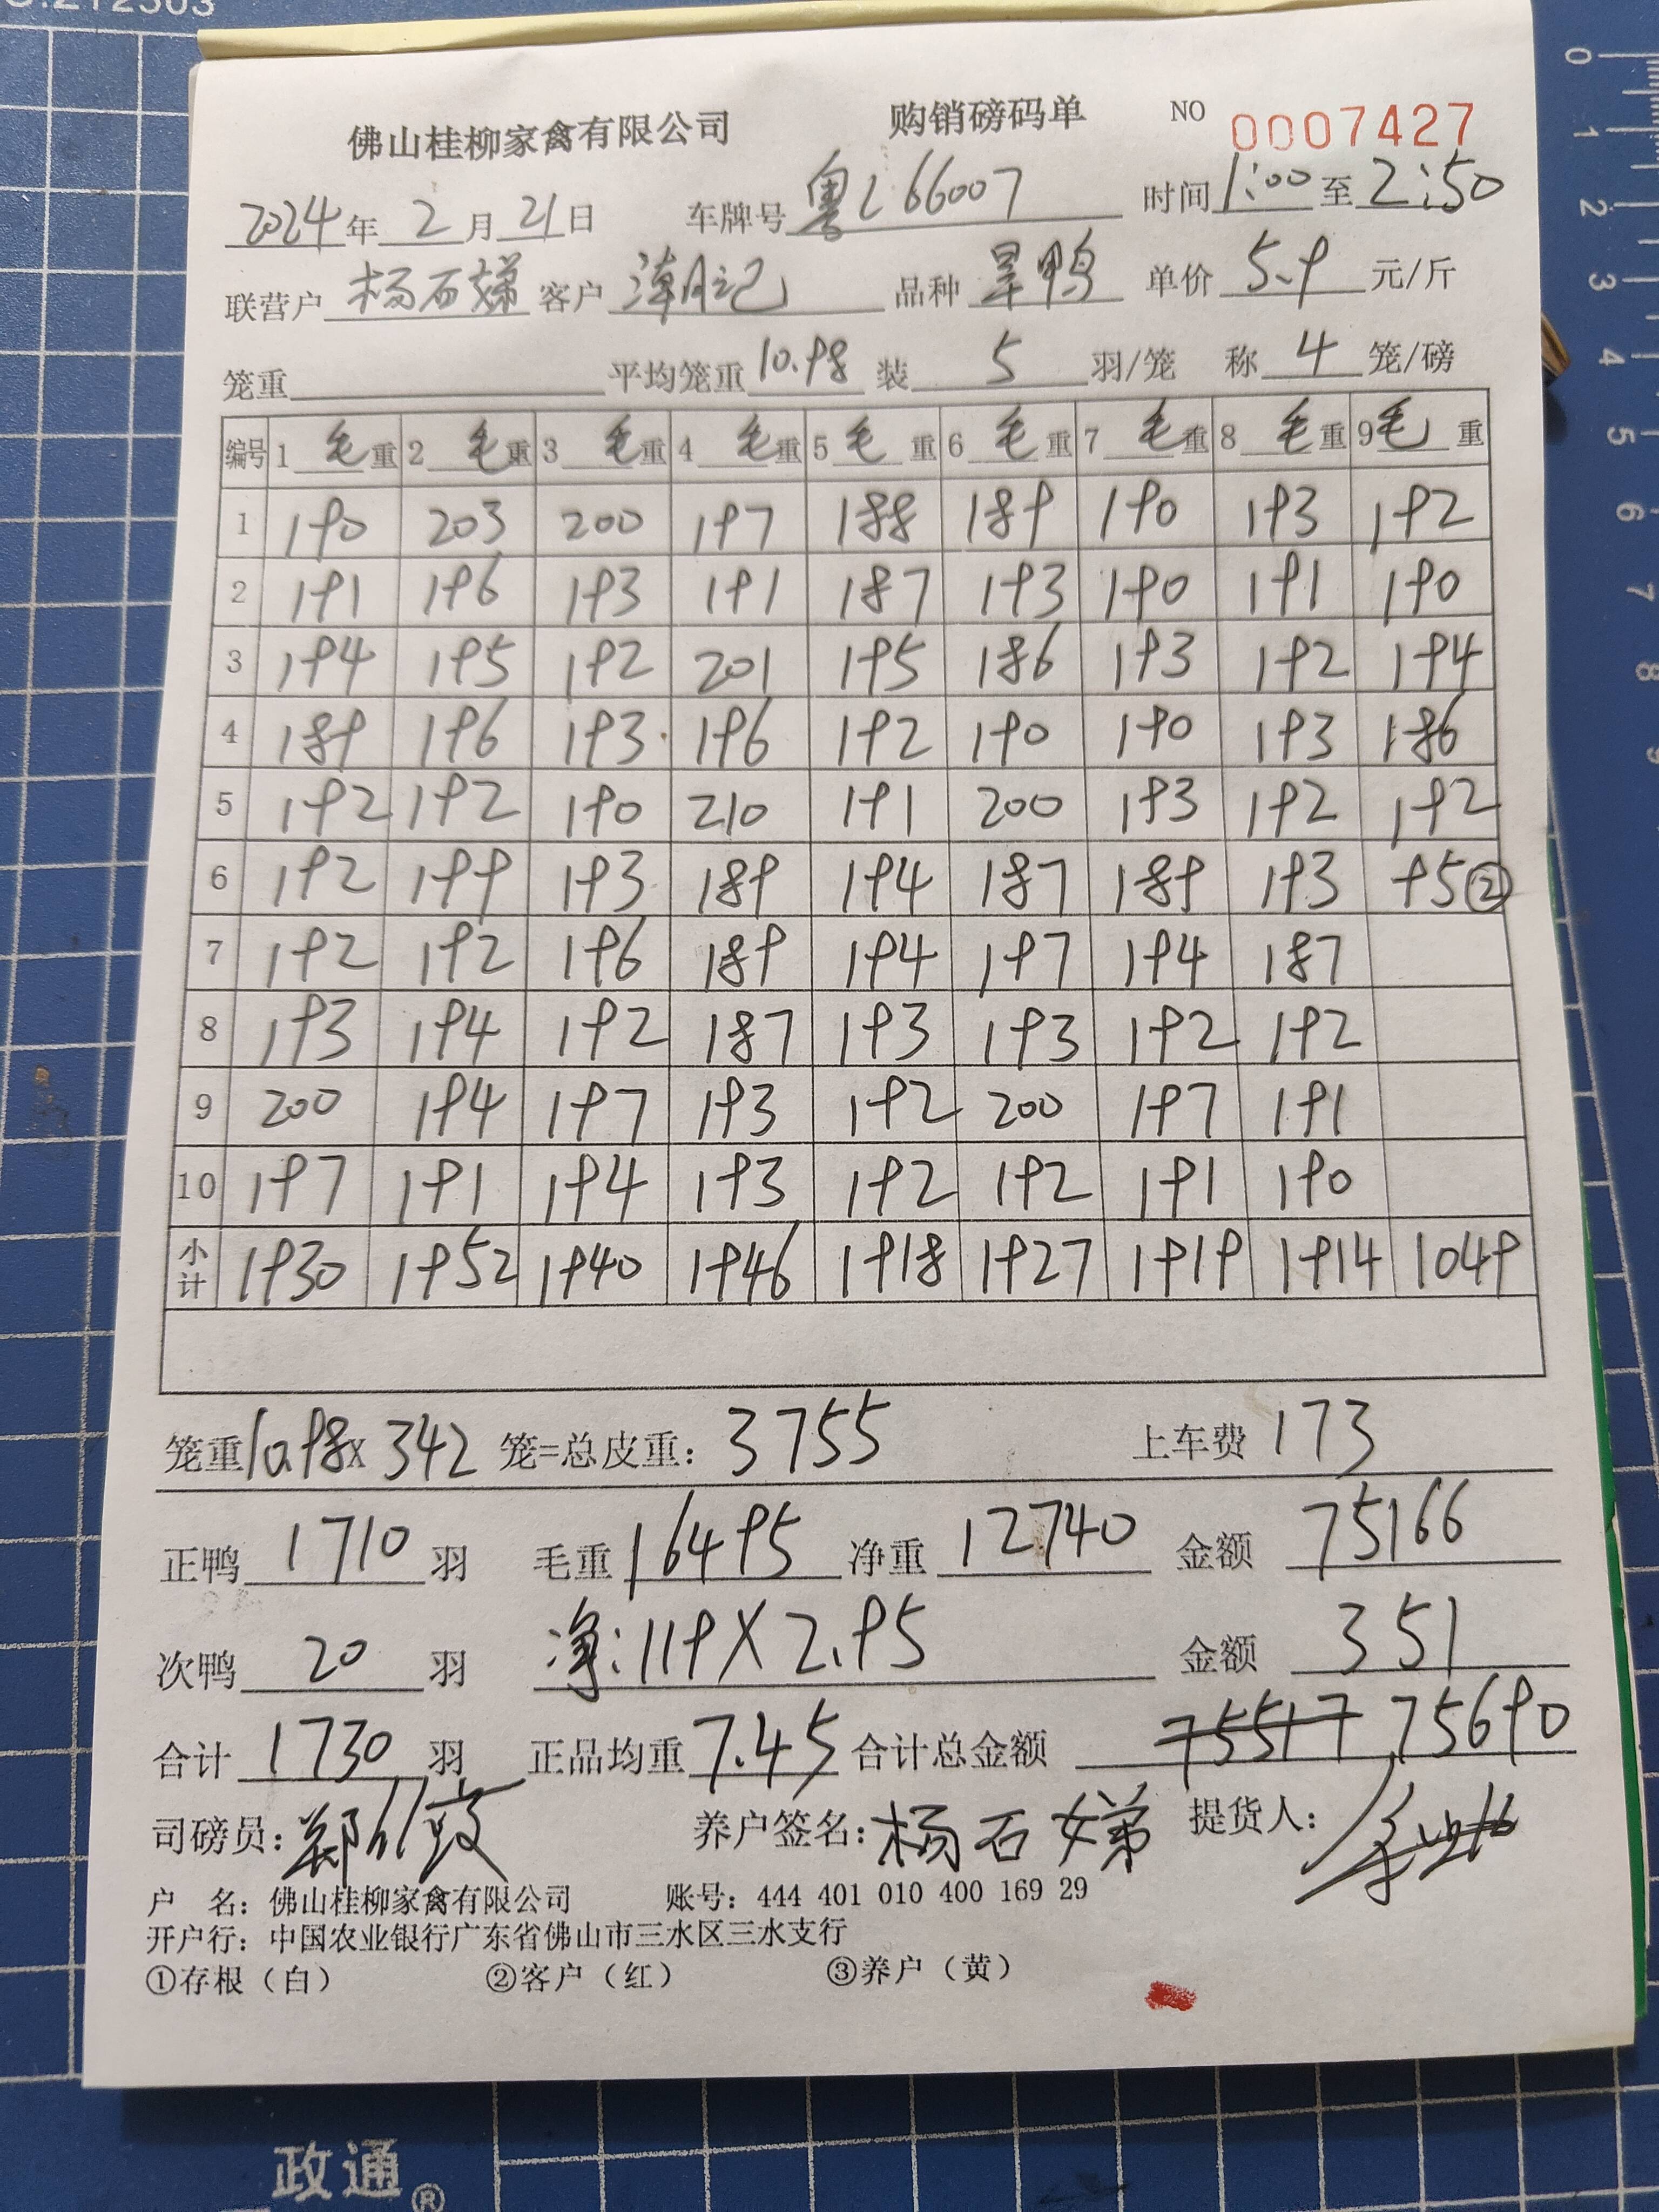 佛山桂柳家禽有限公司 购销磅码单 NO 0007427
2024年 2 月 21 日 车牌号 粤L66007 时间 1:00 至 2:50
联营户 杨石娣 客户 潮记 品种 旱鸭 单价 5.9 元/斤
笼重 平均笼重 10.98 装 5 羽/笼 称 4 笼/磅
编号 1 毛重 2 毛重 3 毛重 4 毛重 5 毛重 6 毛重 7 毛重 8 毛重 9 毛重
1 190 203 200 197 188 189 190 193 192
2 191 196 193 191 187 193 190 191 190
3 194 195 192 201 195 186 193 192 194
4 189 196 193 196 192 190 190 193 186
5 192 192 190 210 191 200 193 192 192
6 192 199 193 189 194 187 189 193 95②
7 192 192 196 189 194 197 194 187
8 193 194 192 187 193 193 192 192
9 200 194 197 193 192 200 197 191
10 197 191 194 193 192 192 191 190
小计 1930 1952 1940 1946 1918 1927 1919 1914 1049
笼重 10.98 x 342 笼=总皮重: 3755 上车费 173
正鸭 1710 羽 毛重 16495 净重 12740 金额 75166
次鸭 20 羽 净:119X2.95 金额 351
合计 1730 羽 正品均重 7.45 合计总金额 75517 75690
司磅员: 郑 养户签名: 杨石娣 提货人:
户 名: 佛山桂柳家禽有限公司 账号: 444 401 010 400 169 29
开户行: 中国农业银行广东省佛山市三水区三水支行
①存根（白） ②客户（红） ③养户（黄）
政通®
0 1 2 3 4 5 6 7 8 9